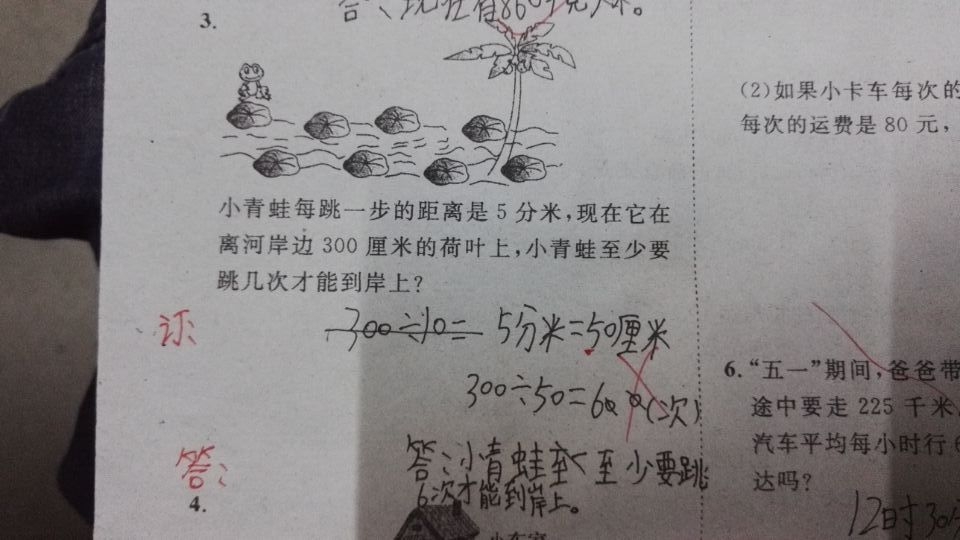 答:现在有860千克大米。
3.
(2)如果小卡车每次的
每次的运费是 80 元,
小青蛙每跳一步的距离是 5 分米,现在它在
离河岸边 300 厘米的荷叶上,小青蛙至少要
跳几次才能到岸上?
300÷10= 5分米=50厘米
300÷50=6(次)
答:小青蛙至少要跳
6次才能到岸上。
答:
4.
6. “五一”期间,爸爸带
途中要走 225 千米
汽车平均每小时行 6
达吗?
12时30分